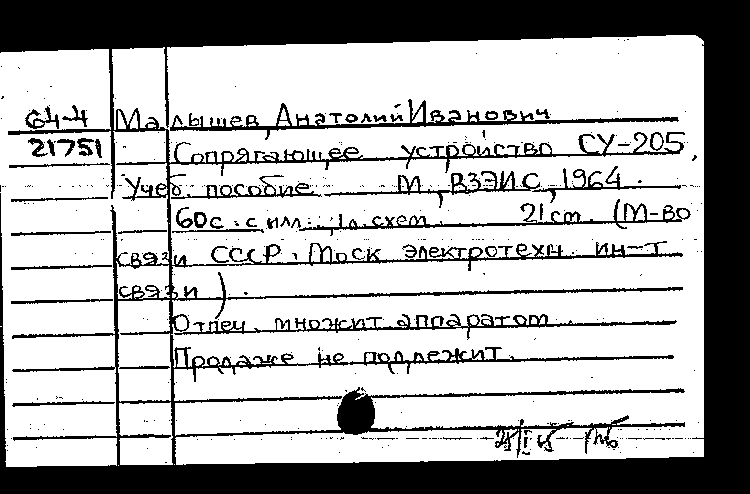 64-4 Малышев, Анатолий Иванович
21751 Сопрягающее устройство СУ-205.
Учеб. пособие М., ВЗЭИС, 1964.
60с. с илл.; 1л. схем. 21 cm. (М-во
связи СССР. Моск электротехн. ин-т
связи).
Отпеч. множит. аппаратом
Продаже не подлежит.